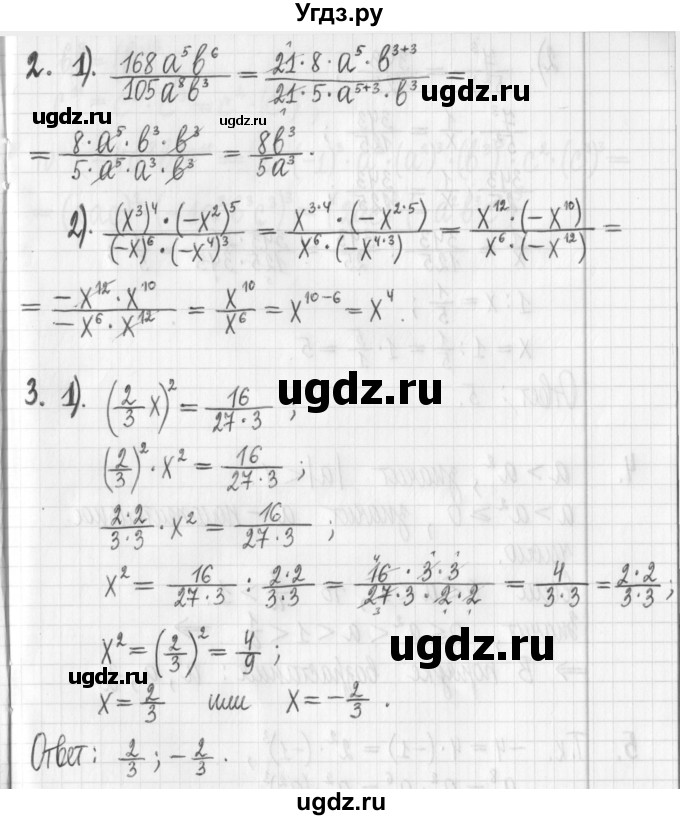 Угдз.ру
2. 1). 168a⁵b⁶/105a⁸b³ = 21·8·a⁵·b³⁺³/21·5·a⁵⁺³·b³ =
ugdz.ru ugdz.ru ugdz.ru
= 8·a⁵·b³·b³/5·a⁵·a³·b³ = 8b³/5a³.
2). (x³)⁴·(-x²)⁵/(-x)⁶·(-x⁴)³ = x³·⁴·(-x²·⁵)/x⁶·(-x⁴·³) = x¹²·(-x¹⁰)/x⁶·(-x¹²) =
= -x¹²·x¹⁰/-x⁶·x¹² = x¹⁰/x⁶ = x¹⁰⁻⁶ = x⁴.
3. 1). (2/3 x)² = 16/27·3 ;
ugdz.ru
(2/3)²·x² = 16/27·3 ;
ugdz.ru
2·2/3·3·x² = 16/27·3 ;
x² = 16/27·3 : 2·2/3·3 = 16·3·3/27·3·2·2 = 4/3·3 = 2·2/3·3 ;
x² = (2/3)² = 4/9 ;
ugdz.ru
ugdz.ru
x = 2/3 или x = -2/3 .
Ответ: 2/3 ; -2/3 .
ugdz.ru
ugdz.ru